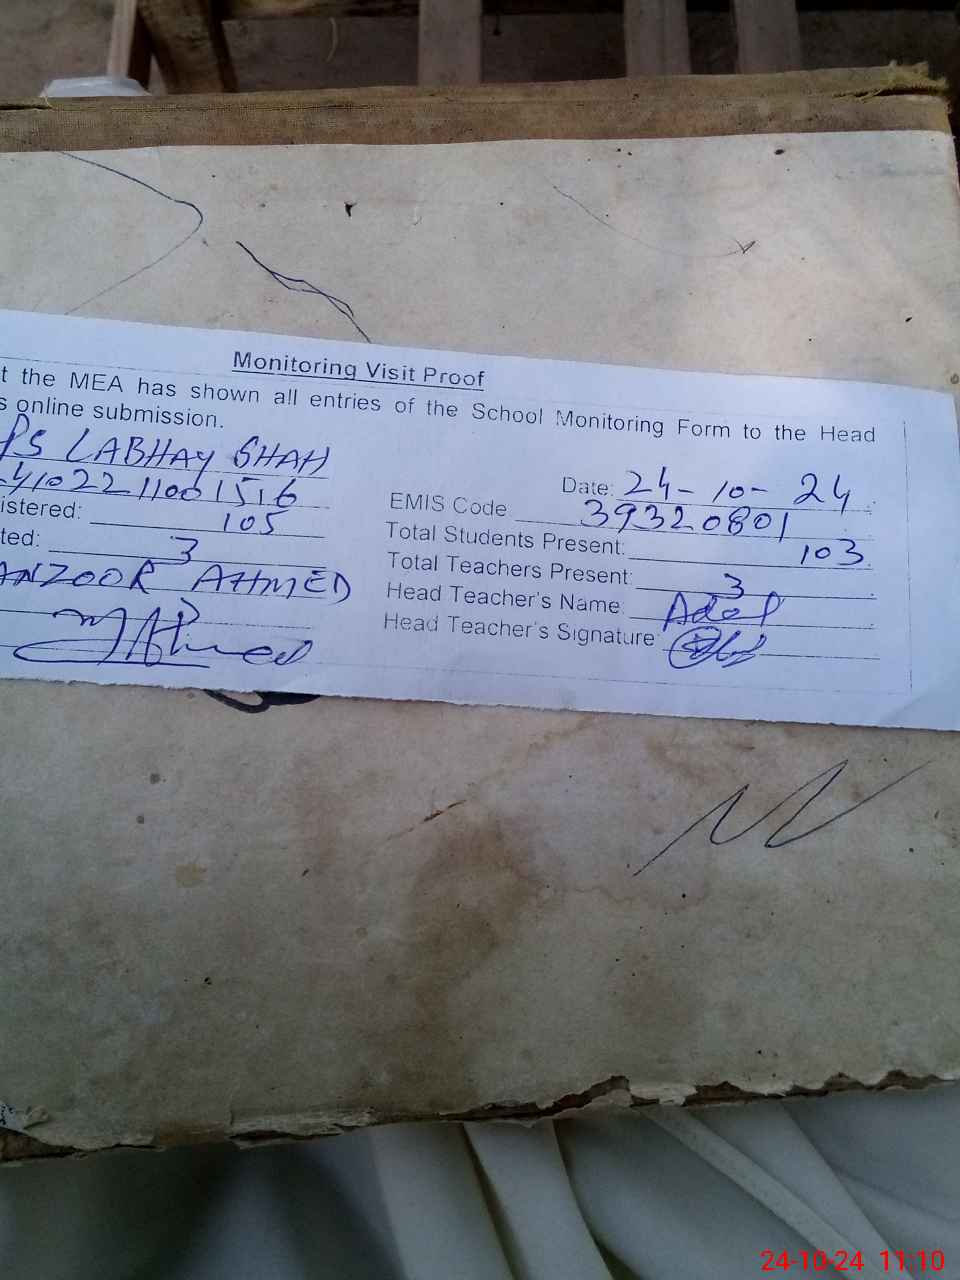 Monitoring Visit Proof
t the MEA has shown all entries of the School Monitoring Form to the Head
s online submission.
PS LABHAY SHAH
Date: 24-10-24
4102211001516
EMIS Code 39320801
istered: 105
Total Students Present: 103
ted: 3
Total Teachers Present: 3
ANZOOR AHMED
Head Teacher's Name:
Head Teacher's Signature:
24-10-24 11:10